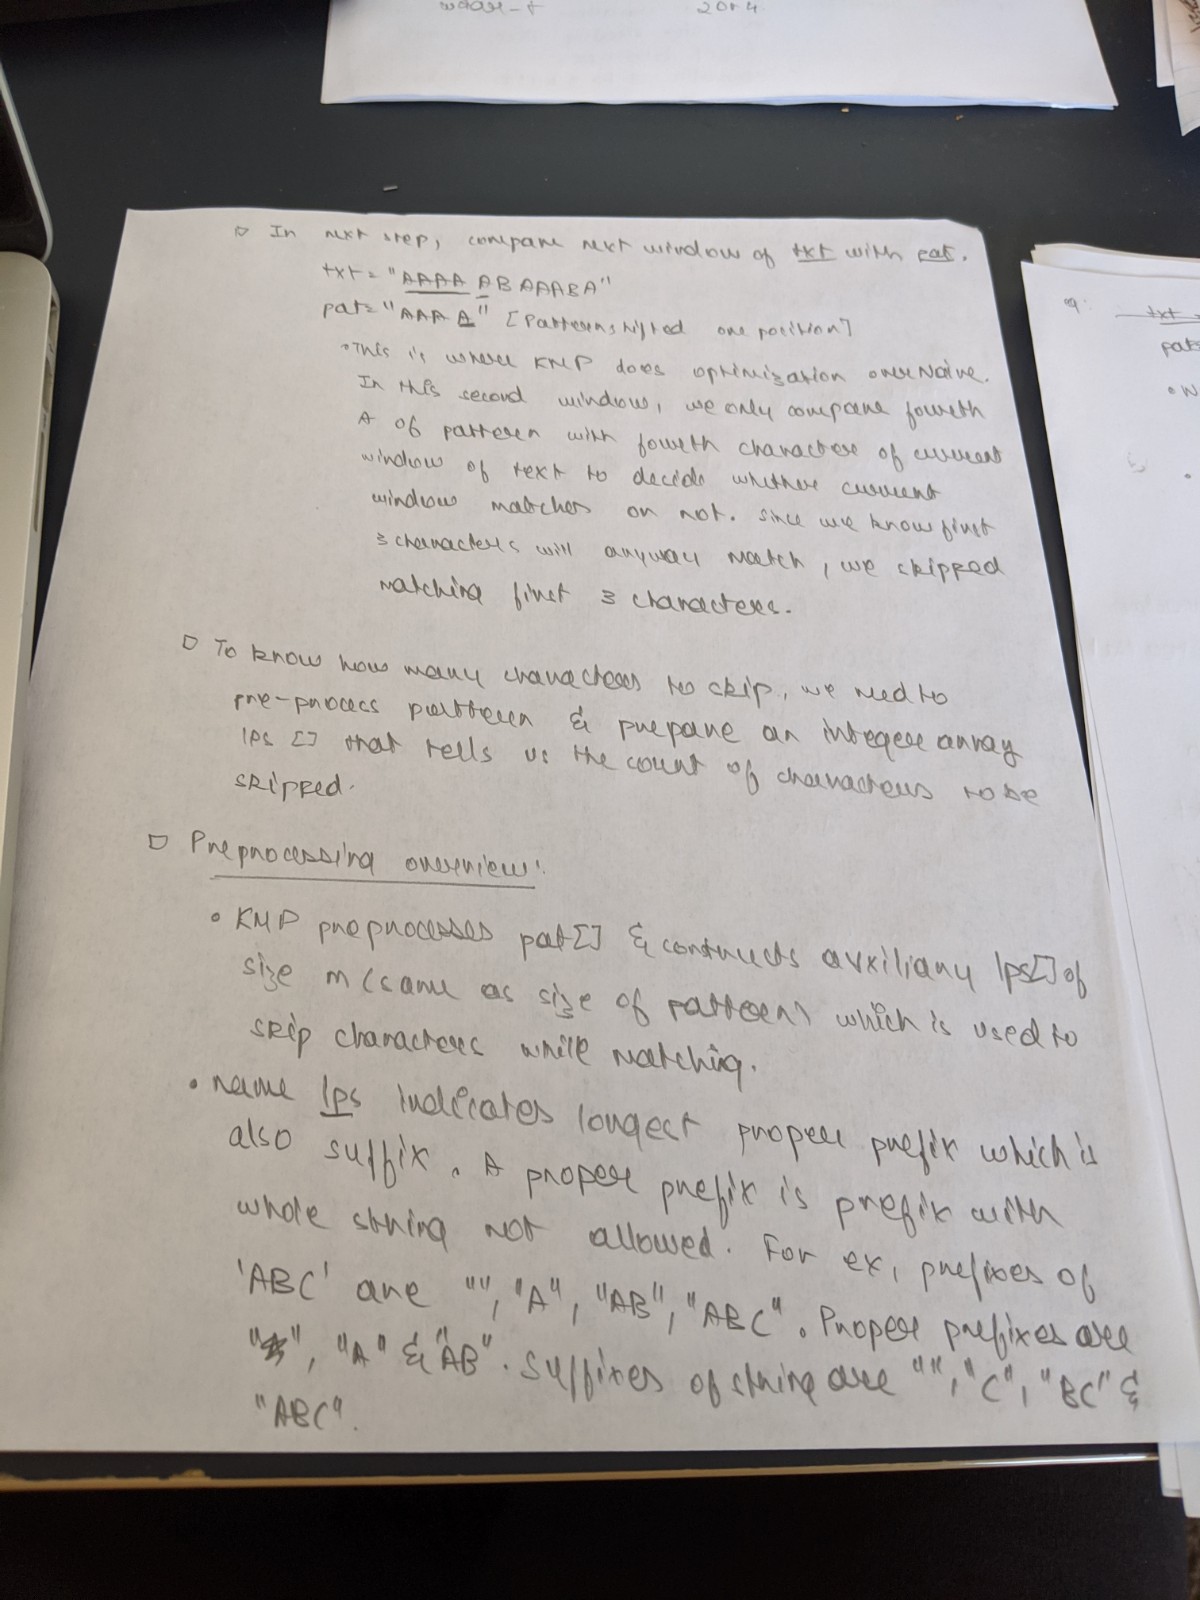 2014
▯ In next step, compare next window of txt with pat.
txt = "AAAA AB AAABA"
pat = "AAA A" [Pattern shifted one position]
• This is where KMP does optimization over Naive.
In this second window, we only compare fourth
A of pattern with fourth character of current
window of text to decide whether current
window matches or not. Since we know first
3 characters will anyway match, we skipped
matching first 3 characters.
▯ To know how many characters to skip, we need to
pre-process pattern & prepare an integer array
lps [] that tells us the count of characters to be
skipped.
▯ Preprocessing overview:
• KMP preprocesses pat[] & contructs auxiliary lps[] of
size m (same as size of pattern) which is used to
skip characters while matching.
• name lps indicates longest proper prefix which is
also suffix. A proper prefix is prefix with
whole string not allowed. For ex, prefixes of
'ABC' are "", "A", "AB", "ABC". Proper prefixes are
"", "A" & "AB". Suffixes of string are "", "C", "BC" &
"ABC".
9:
txt
pat
• N